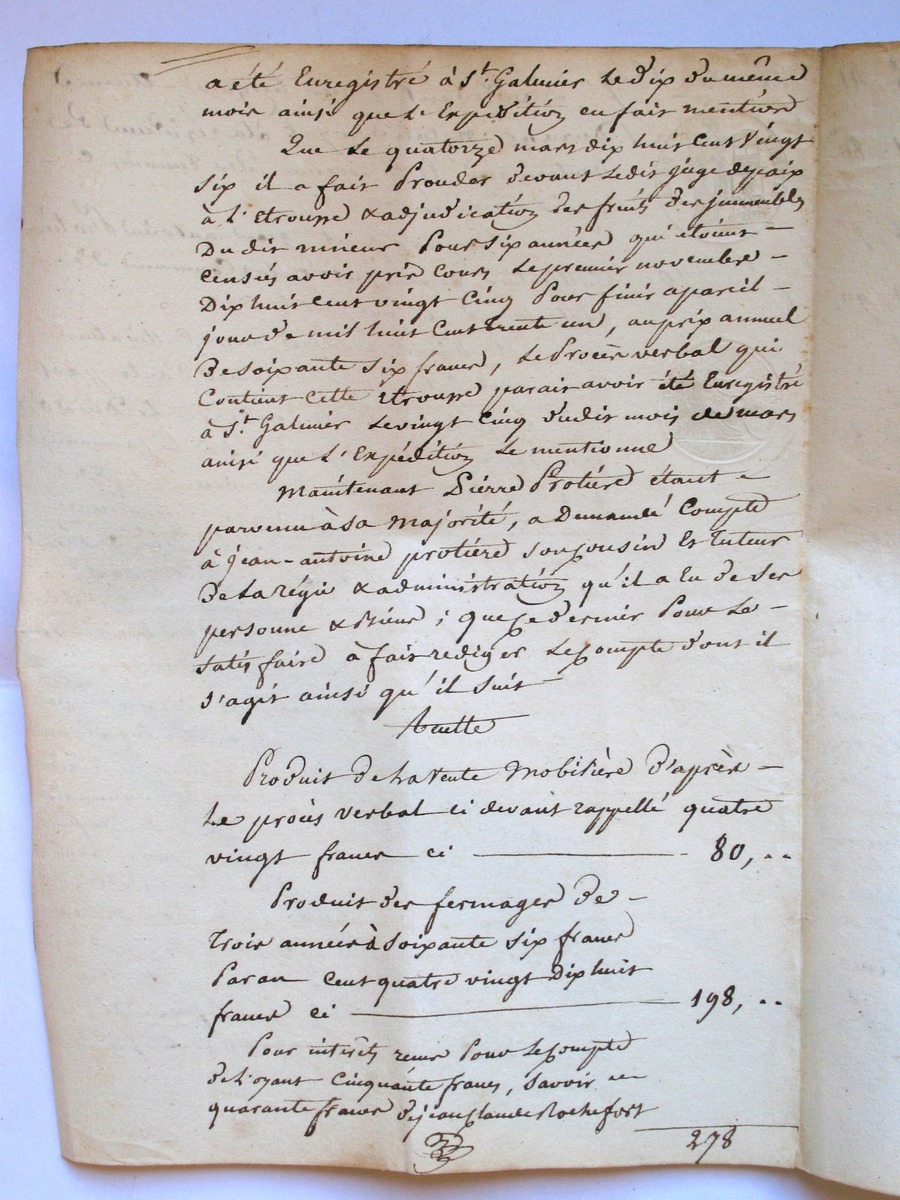 a été Enregistré à St. Galmier Le dix du même
mois ainsi que L'Expédition en fait mention
Que Le quatorze mars dix huit Cent Vingt
six il a fait Proceder devant Ledit juge de paix
à L'Etrousse & adjudication des fruits des jmmeubles
Du dit mineur Pour six années qui étoient -
Censés avoir pris Cours Le premier novembre -
Dix huit Cent vingt Cinq Pour finir a pareil -
jour de mil huit Cent trente un, au prix annuel
De soixante six francs, Le Procès verbal qui
Contient Cette Etrousse parait avoir été Enregistré
à St. Galmier Le vingt Cinq dudit mois de mars
ainsi que L'Expédition Le mentionne
Maintenant Pierre Protière étant -
parvenu à sa Majorité, a Demandé Compte
à jean-antoine protière son Cousin Et Tuteur
De La régie & administration qu'il a Eu de ses
personne & Biens ; que Ce dernier Pour Le -
satisfaire à fait rediger Le Compte dont il
s'agit ainsi qu'il suit -
Produit de La Vente Mobilière d'après -
Le procès verbal ci devant rappellé quatre
vingt francs ci — 80, ..
Produit des fermages De -
Trois années à soixante six francs
Par an Cent quatre vingt Dix huit
francs ci — 198, ..
Pour intérêts reçus Pour Le Compte
de L'oyant Cinquante francs, savoir
quarante francs de jean Claude Rochefort
278